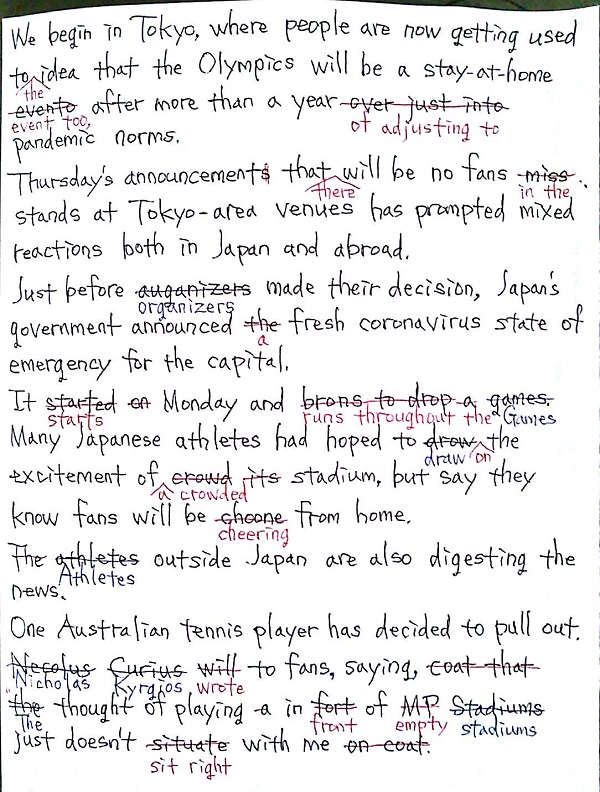 We begin in Tokyo, where people are now getting used
to idea that the Olympics will be a stay-at-home
the
evento after more than a year over just into
event too, of adjusting to
pandemic norms.
Thursday's announcements that will be no fans miss.
there in the
stands at Tokyo-area venues has prompted mixed
reactions both in Japan and abroad.
Just before auganizers made their decision, Japan's
organizers
government announced the fresh coronavirus state of
a
emergency for the capital.
It started on Monday and brons to drop a games.
starts runs throughout the Games
Many Japanese athletes had hoped to drow the
draw on
excitement of crowd its stadium, but say they
a crowded
know fans will be choone from home.
cheering
The athletes outside Japan are also digesting the
Athletes
news.
One Australian tennis player has decided to pull out.
Necolus Curius will to fans, saying, coat that
Nicholas Kyrgios wrote
"the thought of playing a in fort of MP Stadiums
The front empty stadiums
just doesn't situate with me on coat.
sit right